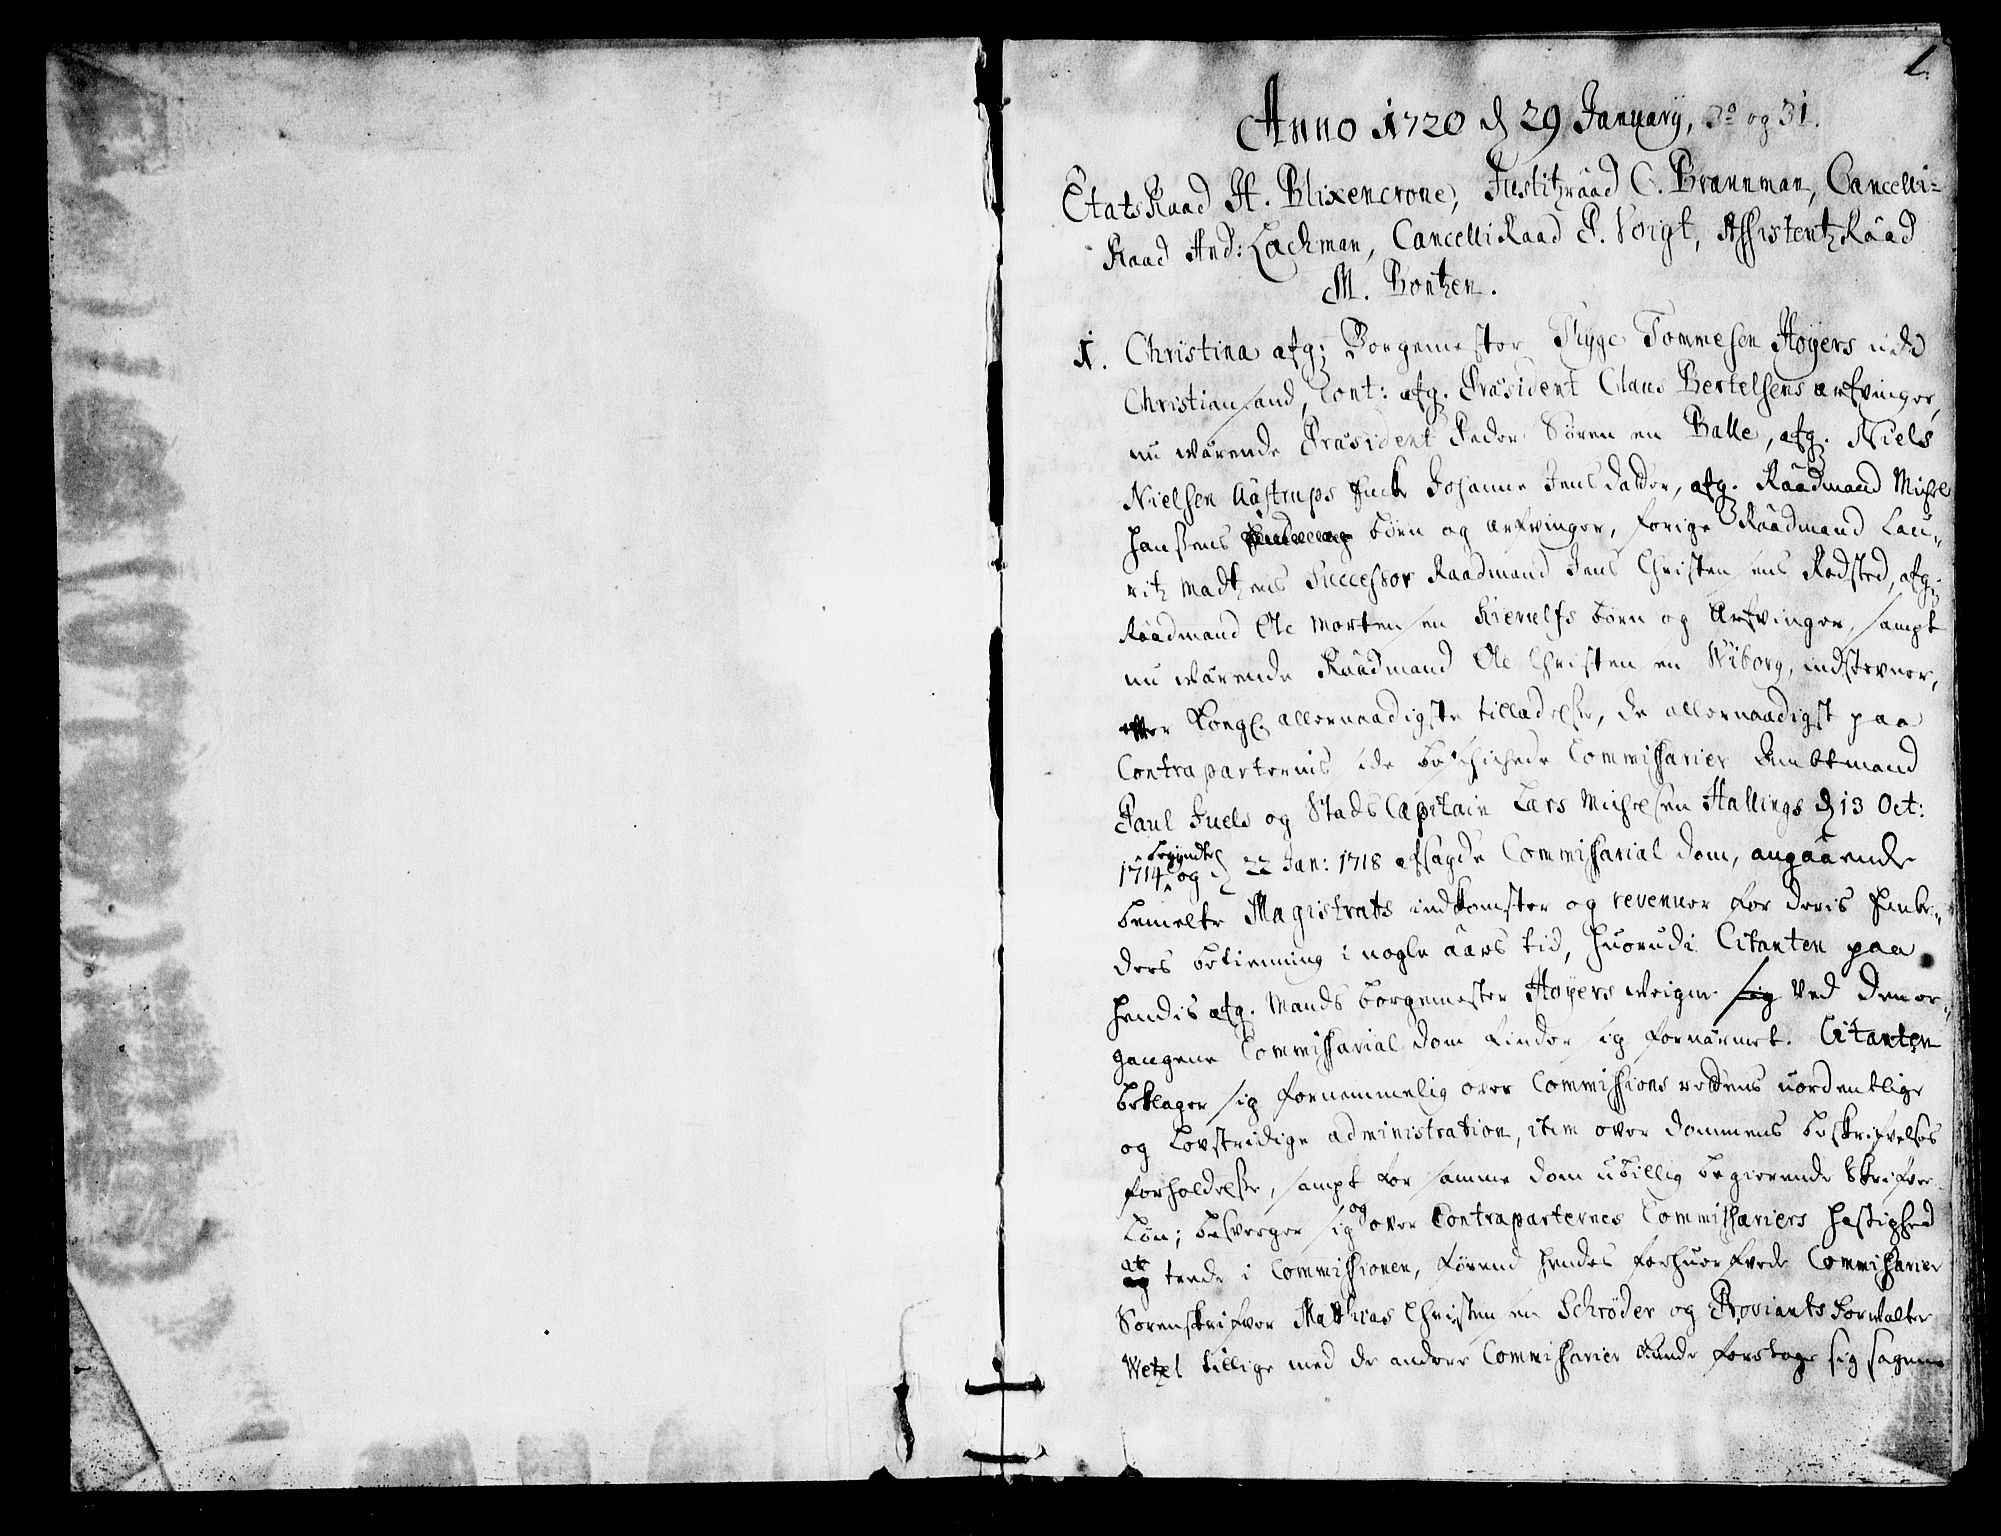 1.
Anno 1720 d 29 January, 30 og 31.
EtatsRaad H. Blixencrone, Justitzraad C. Brannman, Cancelli=
Raad And: Lachman, CancelliRaad P. Voigt, AssistentzRaad
M. Bontzen.
1. Christina afg: Borgemester Thyge Tommesen Høyers udi
Christiansand, Cont: afg. Præsident Claus Bertelsens arfvinger,
nu værende Præsident Peder Sørensen Balle, afg. Niels
Nielsen Aastrups Encke Johanne Jens datter, afg. Raadmand Michel
Hansens børn og arfvinger, forige Raadmand Lau„
ritz Madtzens Successor Raadmand Jens Christensens Rødsted, afg.
Raadmand Ole Mortensen Kierulfs børn og Arfvinger, sampt
nu værende Raadmand Ole Christensen Wiborg, indstevner,
efter Kongl. allernaadigste tilladelse, de allernaadigst paa
Contraparternis side beschichede Commissarier Ambtmand
Paul Juels og StadsCapitain Lars Michelsen Hallings d 13 Oct:
1714 begyndte og d 22 Jan: 1718 afsagde Commissarial dom, angaaende
bemelte Magistrats indkomster og revenuer for deris Embe„
ders betienning i nogle aars tid, huorudi Citanten paa
hendis afg. Mands borgemester Høyers weigne sig ved den er„
gangene Commissarial dom finder sig fornærmet. Citanten
beklager sig fornemmelig over Commissions rettens uordentlige
og lovstridige administration, item over dommens beskrifvelses
forholdelse, sampt for samme dom ubillig begierende Skrifver
løn; besverger sig og over Contraparternes Commissariers hastighed
at trede i Commissionen, førend hendes forhuerfvede Commissarier
Sorenskrifver Matthias Christensen Schrøder og Proviantsforvalter
Wetzel tillige med de andere Commissarier kunde foretage sig sagene